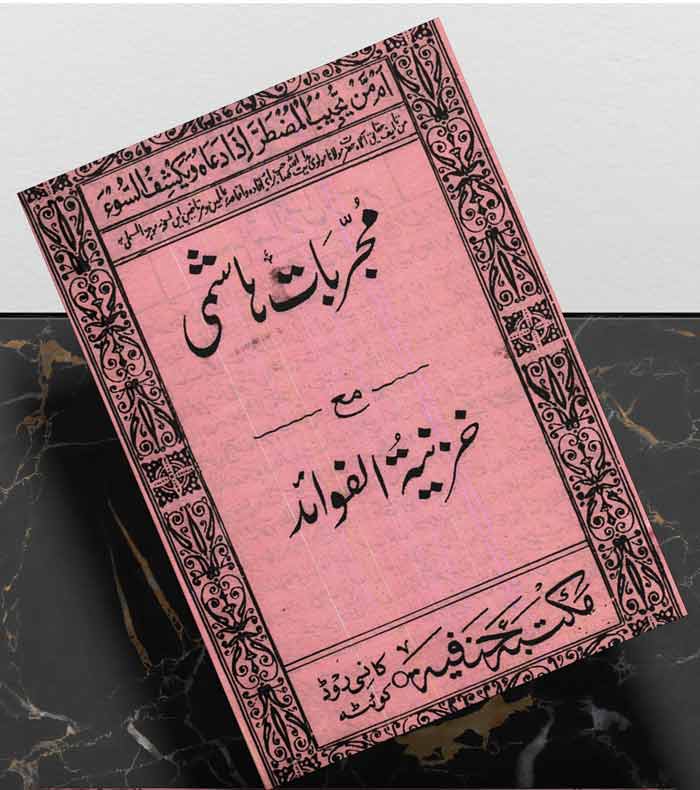 امّن يجيب المضطرّ اذا دعاه ويكشف السوء
مُجرّبات ہاشمی
مع
خزنیۃُ الفوائد
مکتبہ حنفیہ
کانسی روڈ
کوئٹہ